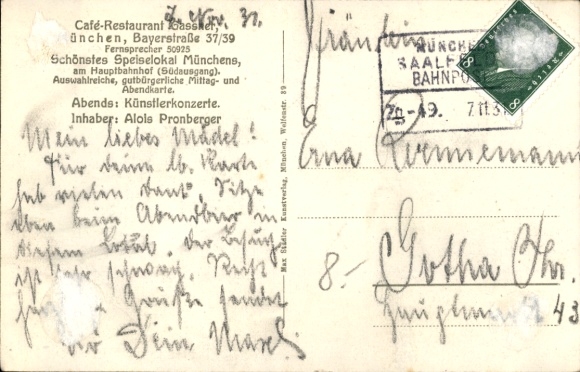 7. Nov. 31.
Café-Restaurant Gassner,
ünchen, Bayerstraße 37/39
Fernsprecher 50925
Schönstes Speiselokal Münchens,
am Hauptbahnhof (Südausgang).
Auswahlreiche, gutbürgerliche Mittag- und
Abendkarte.
Abends: Künstlerkonzerte.
Inhaber: Alois Pronberger
Mein liebes Mädel!
Für deine lb. Karte
hab vielen Dank. Sitze
eben beim Abendbier in
diesem Lokal, der Besuch
ist sehr schwach. Recht
Grüße sendet
Dir Dein Maxl.
Max Stadler Kunstverlag, München, Welfenstr. 39
Fräulein
Erna
8.- Gotha Thr.
43
MÜNCHEN
SAALFELD
BAHNPOST
Zg-49. 7.11.31
8 8